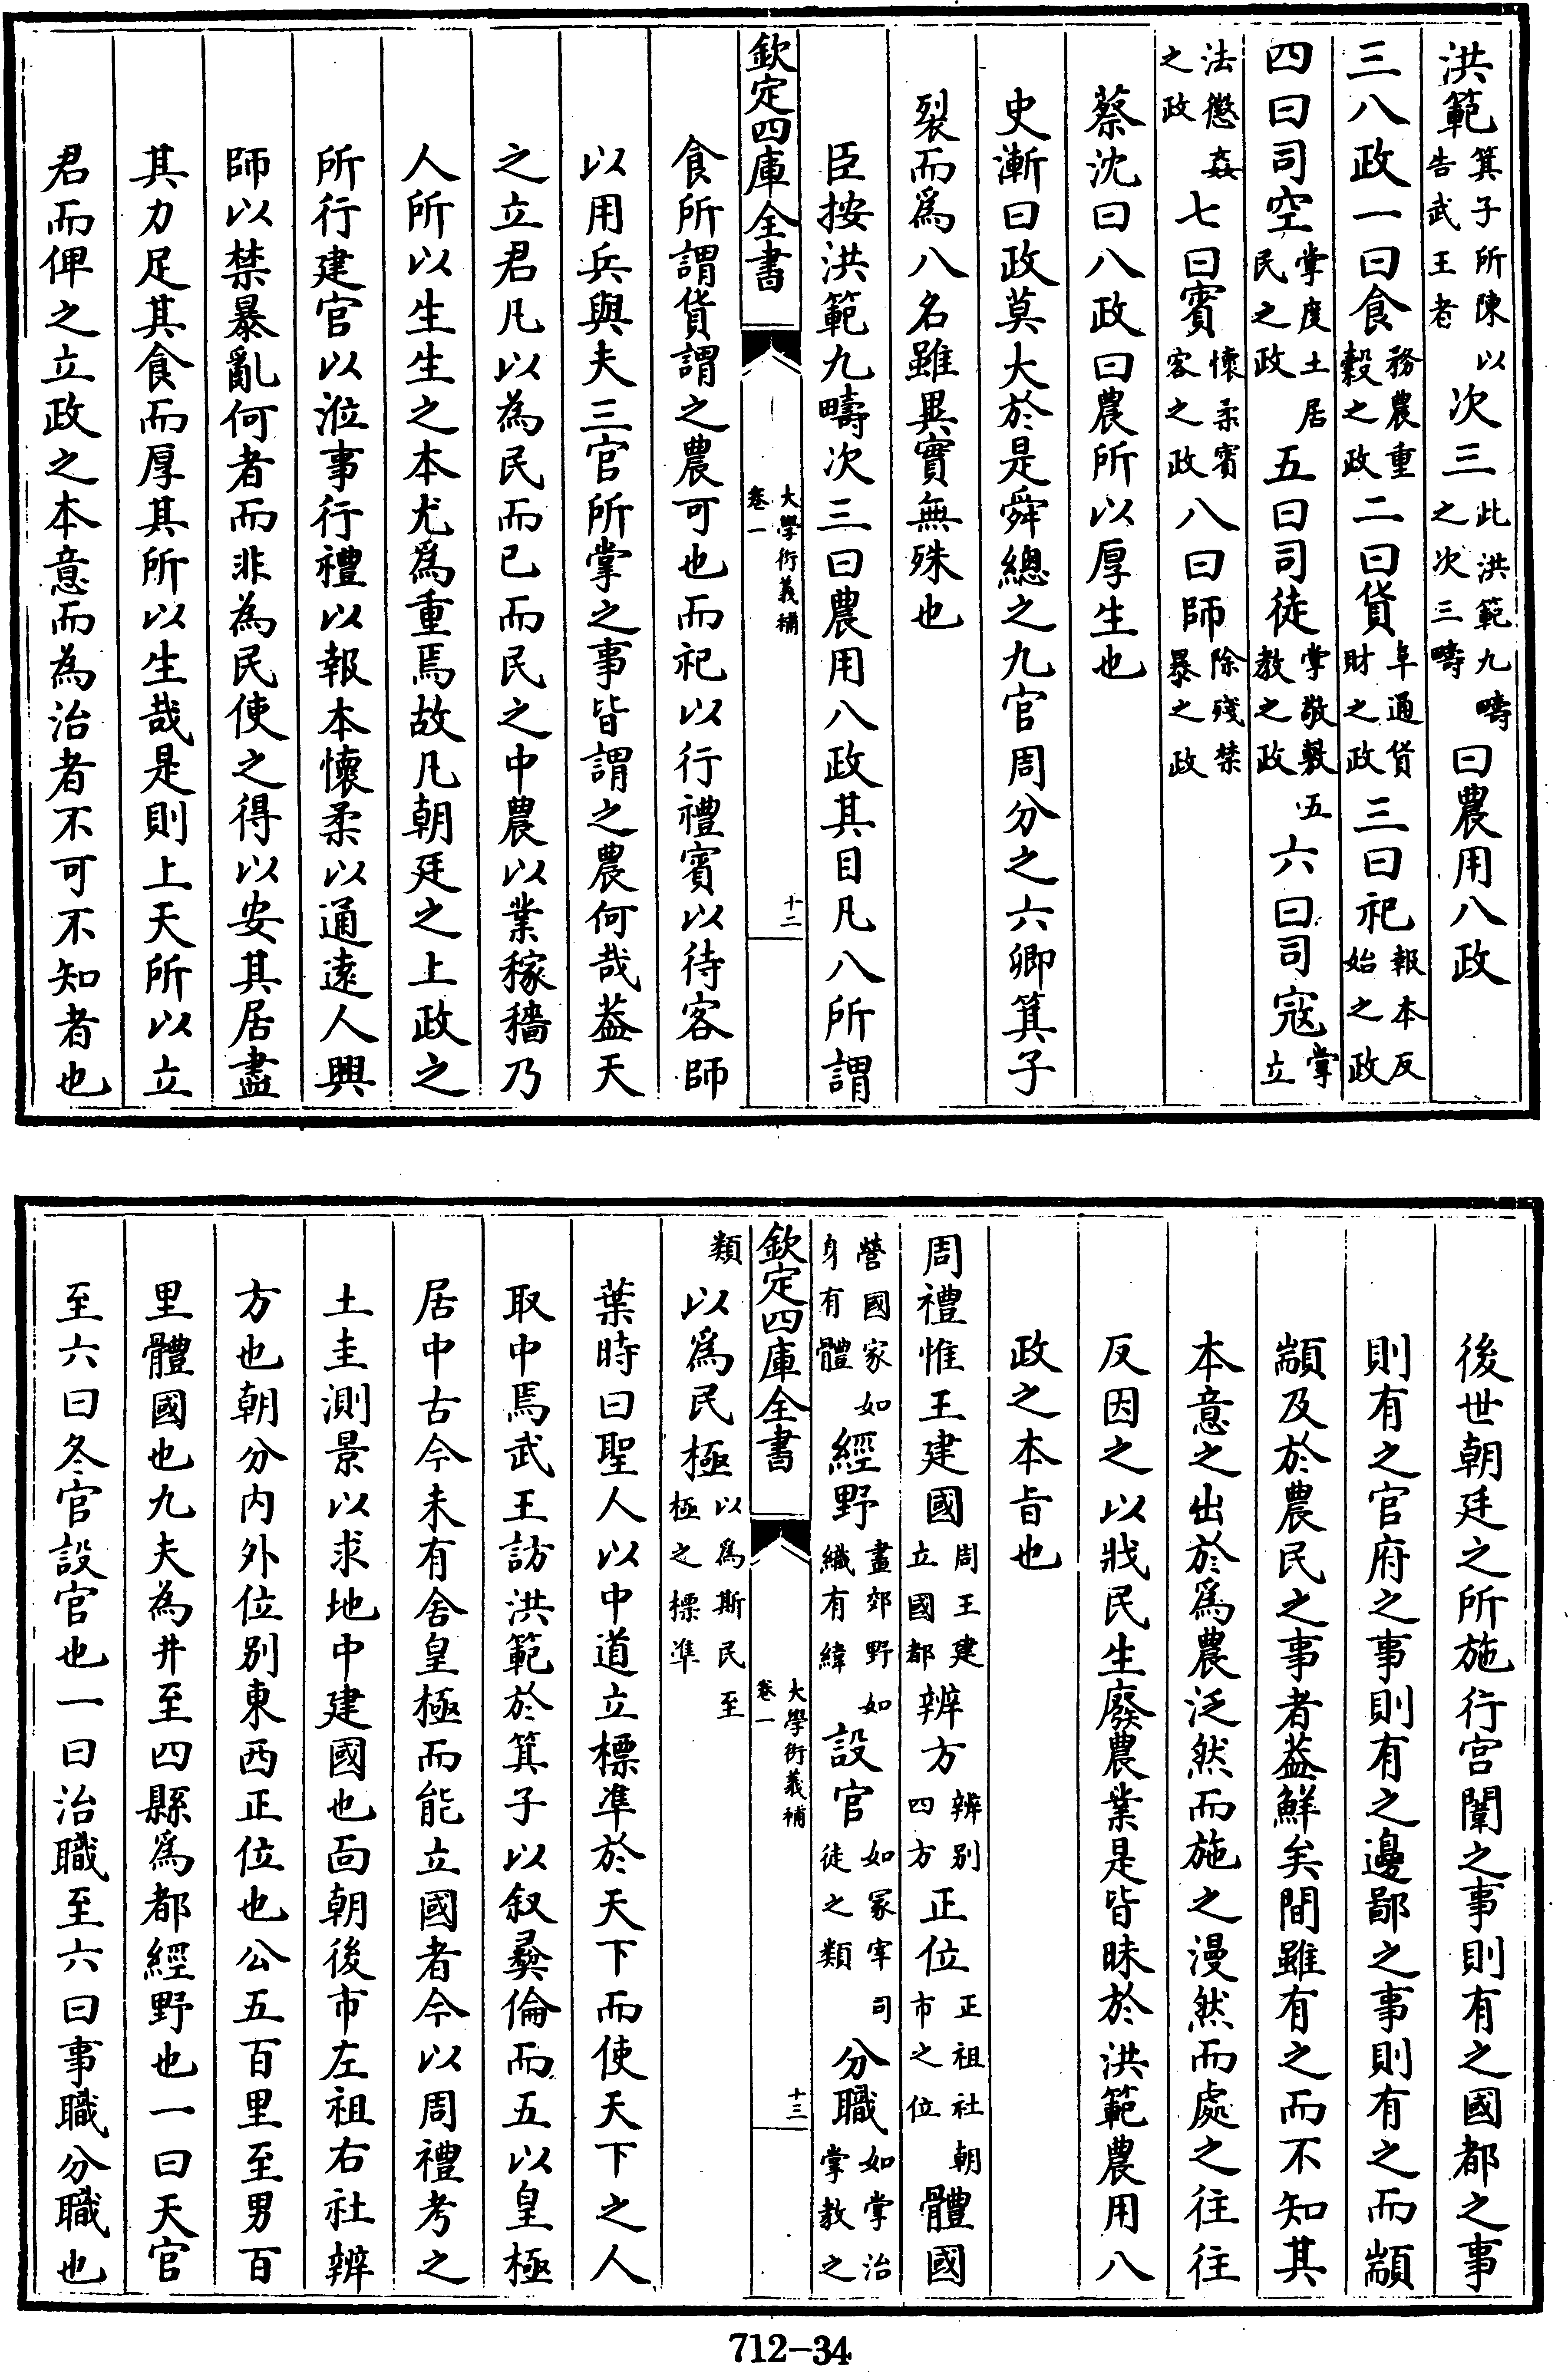 洪範箕子所陳以告武王者次三此洪範九疇之次三疇曰農用八政
三八政一曰食務農重穀之政二曰貨阜通貨財之政三曰祀報本反始之政
四曰司空掌度土居民之政五曰司徒掌敬敷五教之政六曰司寇掌立
法懲姦之政七曰賓懷柔賓客之政八曰師除殘禁暴之政
蔡沈曰八政曰農所以厚生也
史漸曰政莫大於是舜總之九官周分之六卿箕子
裂而為八名雖異實無殊也
臣按洪範九疇次三曰農用八政其目凡八所謂
欽定四庫全書
大學衍義補
卷一
十二
食所謂貨謂之農可也而祀以行禮賓以待客師
以用兵與夫三官所掌之事皆謂之農何哉葢天
之立君凡以為民而已而民之中農以業稼穡乃
人所以生生之本尤為重焉故凡朝廷之上政之
所行建官以涖事行禮以報本懷柔以通遠人興
師以禁暴亂何者而非為民使之得以安其居盡
其力足其食而厚其所以生哉是則上天所以立
君而俾之立政之本意而為治者不可不知者也
後世朝廷之所施行宫闈之事則有之國都之事
則有之官府之事則有之邊鄙之事則有之而顓
顓及於農民之事者葢鮮矣間雖有之而不知其
本意之出於為農泛然而施之漫然而處之往往
反因之以戕民生廢農業是皆昧於洪範農用八
政之本旨也
周禮惟王建國周王建立國都辨方辨别四方正位正祖社朝市之位體國
營國家如身有體經野畫郊野如織有緯設官如冢宰司徒之類分職如掌治掌教之
類以為民極以為斯民至極之標準
欽定四庫全書
大學衍義補
卷一
十三
葉時曰聖人以中道立標準於天下而使天下之人
取中焉武王訪洪範於箕子以叙彞倫而五以皇極
居中古今未有舍皇極而能立國者今以周禮考之
土圭測景以求地中建國也面朝後市左祖右社辨
方也朝分内外位别東西正位也公五百里至男百
里體國也九夫為井至四縣為都經野也一曰天官
至六曰冬官設官也一曰治職至六曰事職分職也
712-34